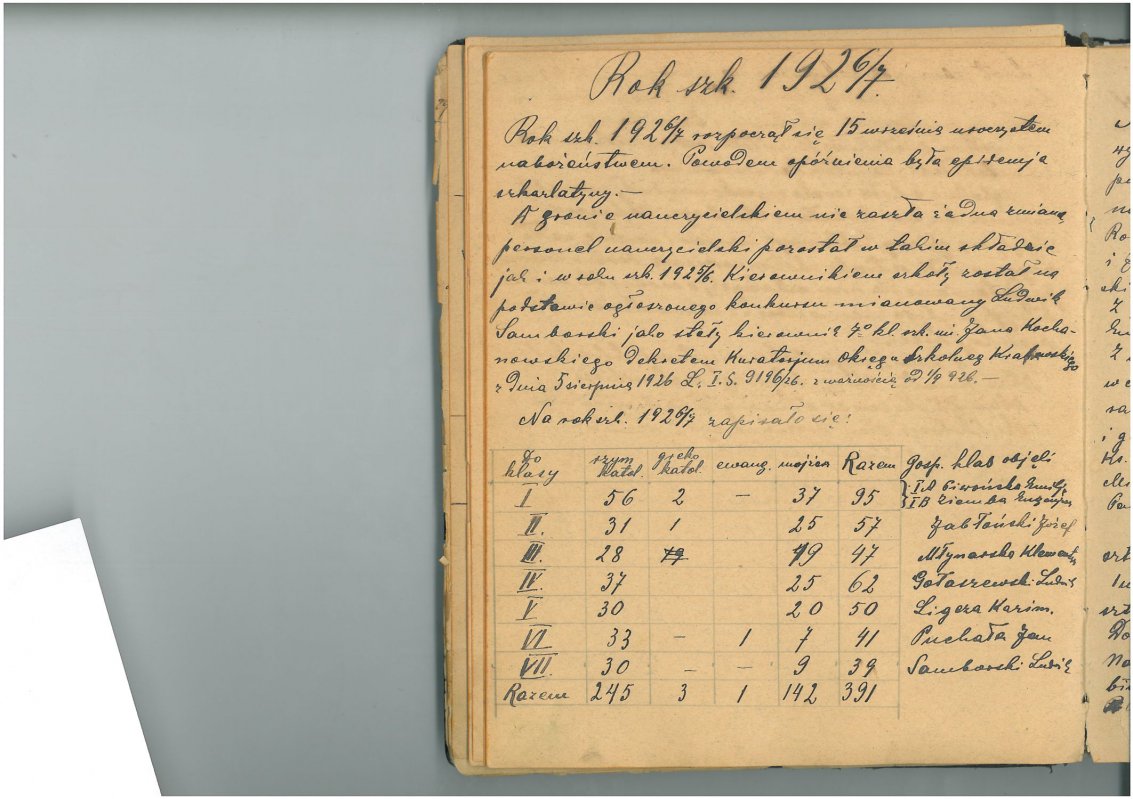 Rok szk. 1926/7.
Rok szk. 1926/7 rozpoczął się 15 września uroczystem
nabożeństwem. Powodem opóźnienia była epidemja
szkarlatyny.—
W gronie nauczycielskiem nie zaszła żadna zmiana,
personel nauczycielski pozostał w takim składzie
jak i w roku szk. 1925/6. Kierownikiem szkoły został na
podstawie ogłoszonego konkursu mianowany Ludwik
Samborski jako stały kierownik 7o kl. szk. im. Jana Kocha-
nowskiego dekretem Kuratorjum Okręgu Szkolneg Krakowskiego
z dnia 5 sierpnia 1926 L. I. S. 9196/26. z ważnością od 1/9 926.—
Na rok szk. 1926/7 zapisało się:
Do klasy rzym katol. greko katol. ewang. mojżesz Razem Gosp. klas objęli
I 56 2 — 37 95 IA Pierońska Emilja
IB Ziemba Eugenjusz
II. 31 1 25 57 Jabłoński Józef
III. 28 19 47 Młynarska Klementyna
IV. 37 25 62 Gołaszewski Ludwik
V 30 20 50 Ligęza Kazim.
VI 33 — 1 7 41 Puchała Jan
VII. 30 — — 9 39 Samborski Ludwik
Razem 245 3 1 142 391